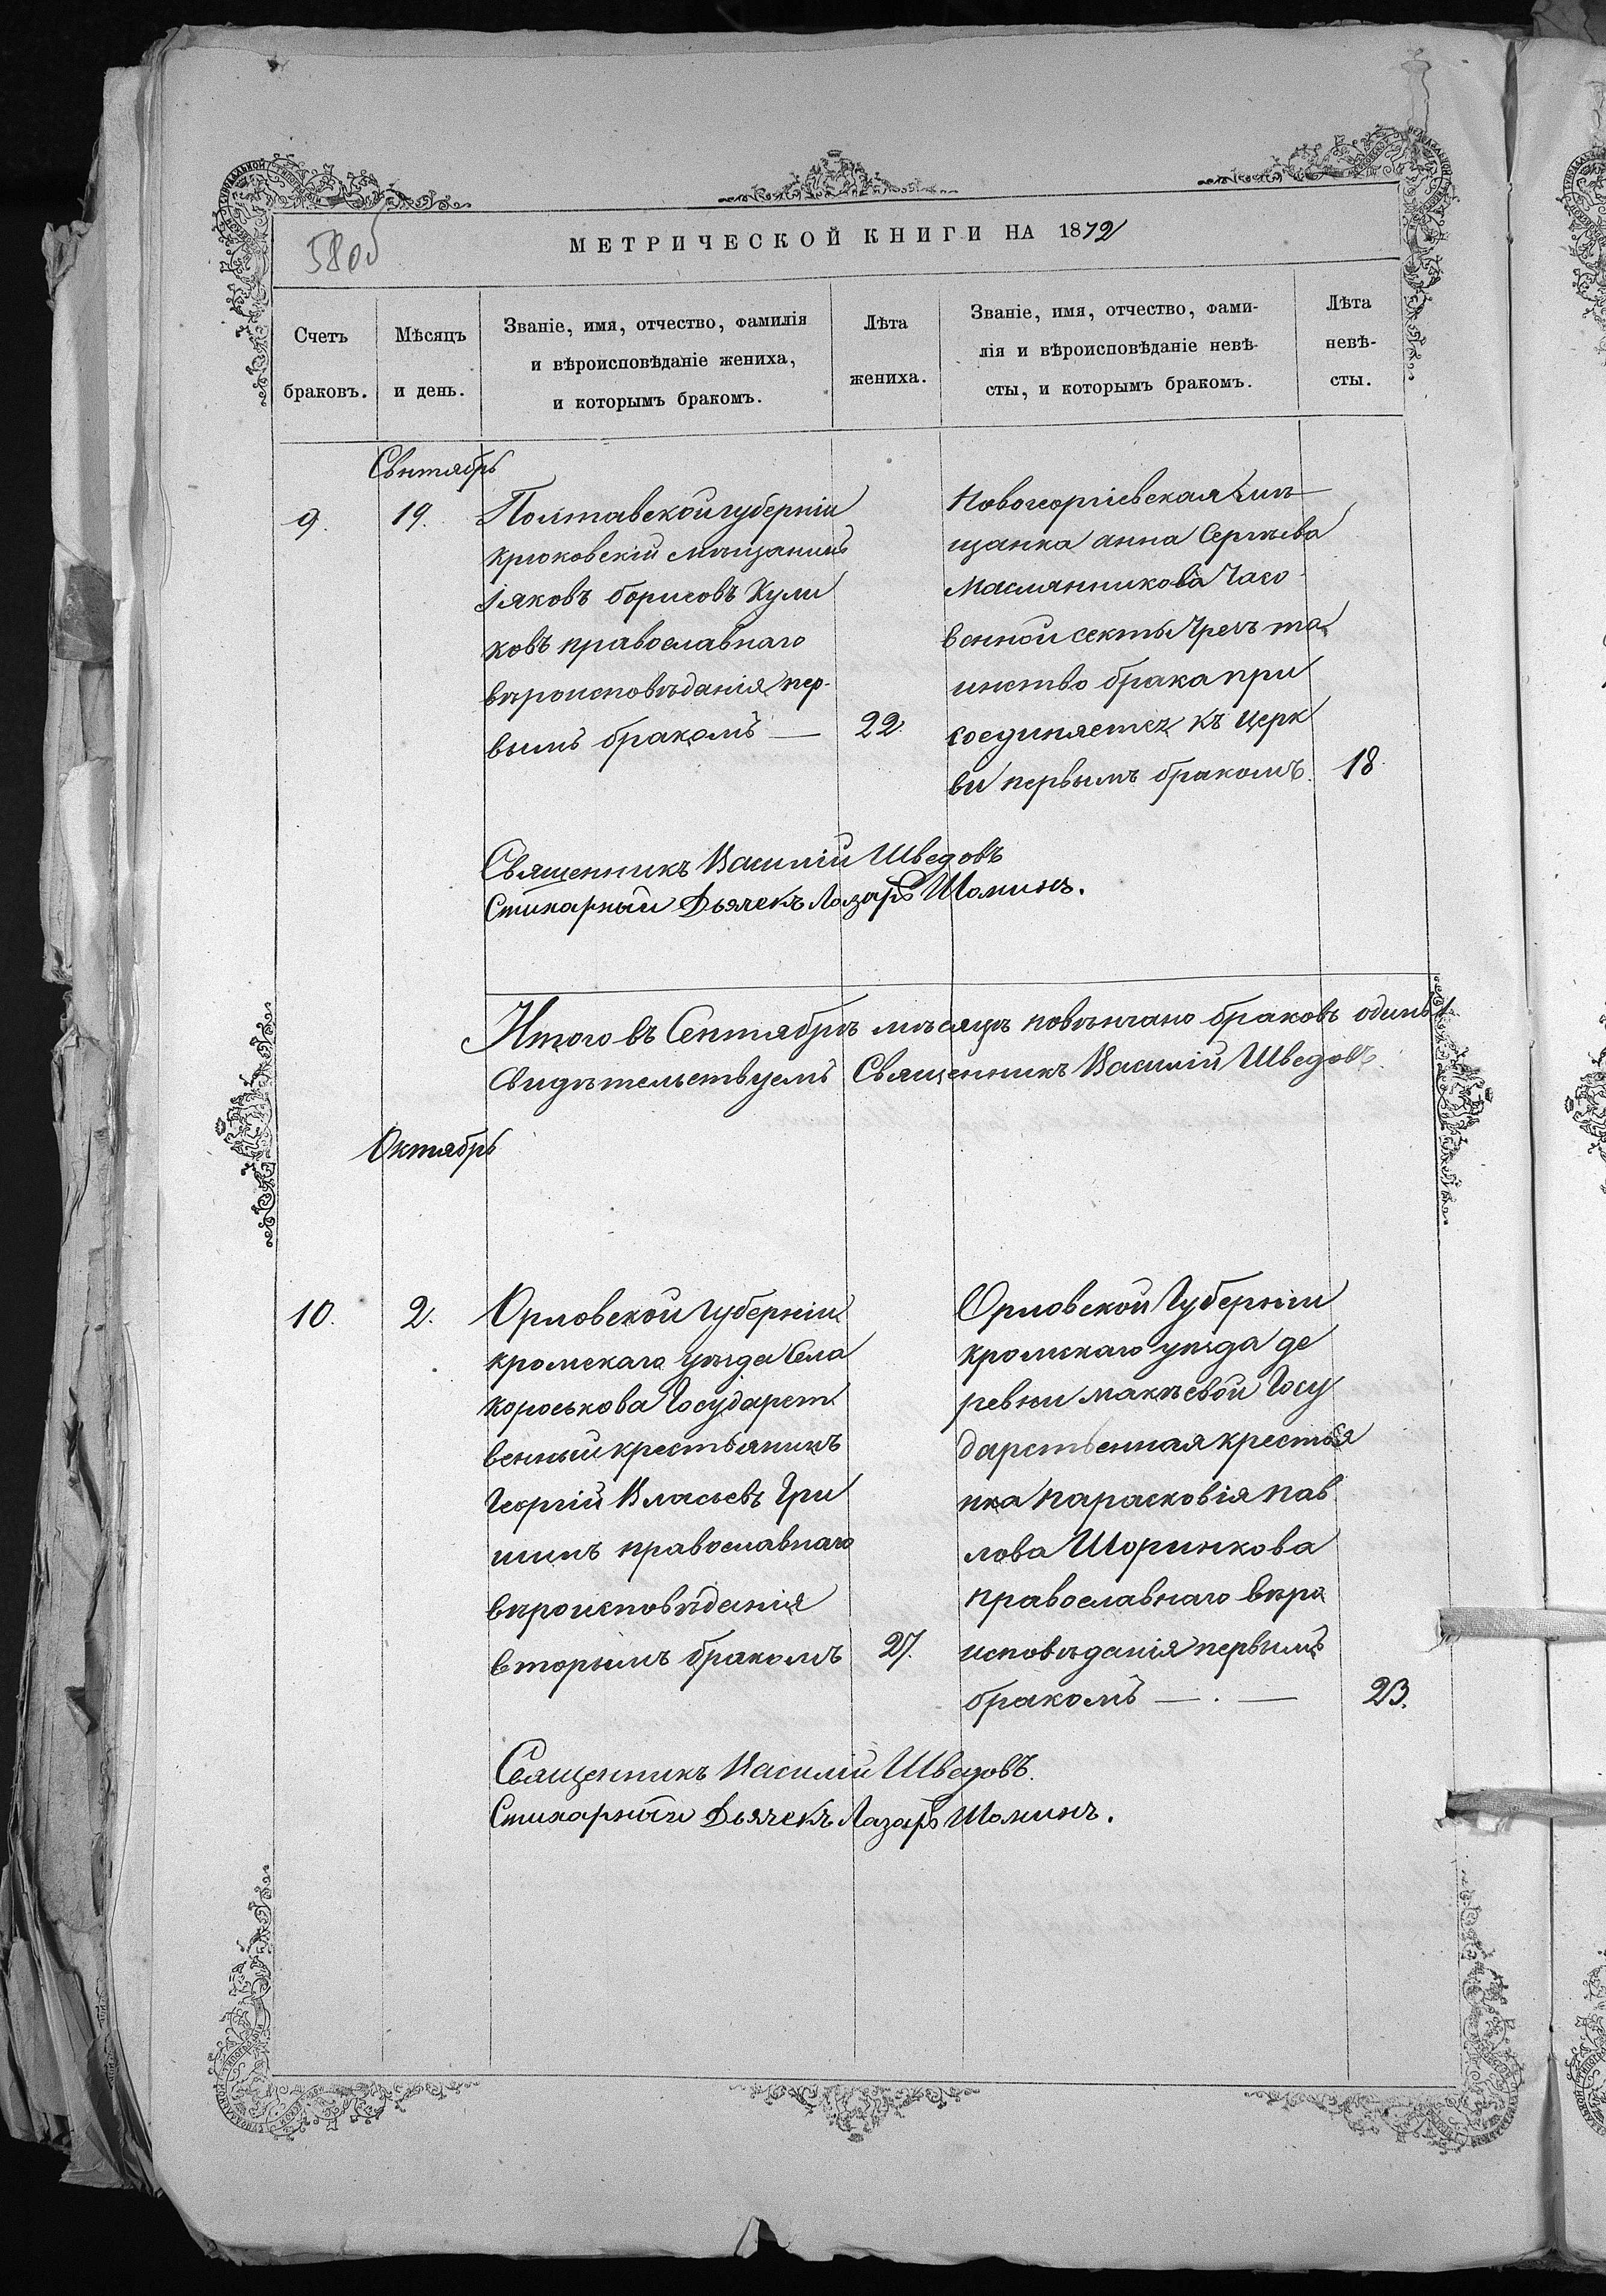 580б
МЕТРИЧЕСКОЙ КНИГИ НА 1872
Счетъ
браковъ.
Мѣсяцъ
и день.
Званіе, имя, отчество, фамилія
и вѣроисповѣданіе жениха,
и которымъ бракомъ.
Лѣта
жениха.
Званіе, имя, отчество, фами-
лія и вѣроисповѣданіе невѣ-
сты, и которымъ бракомъ.
Лѣта
невѣ-
сты.
Сентябрь
9.
19.
Полтавской губерніи
крюковскій мѣщанинъ
Іяковъ борисовъ Кули
ковъ православнаго
вѣроисповѣданія, пер-
вымъ бракомъ —
22.
Новогеоргіевская мѣ-
щанка анна Сергѣева
Маслянникова Часо-
венной секты Чрезъ та
инство брака при
соединяется къ церк
ви первымъ бракомъ.
18
Священникъ Василій Шведовъ
Стихарный Дьячекъ Лазарь Шоминъ.
Итого въ Сентябрѣ мѣсяцѣ повѣнчано браковъ одинъ 1
Свидѣтельствуемъ Священникъ Василій Шведовъ.
Октябрь
10.
2.
Орловской губерніи
кромскаго уѣзда Села
короськова Государст
венный крестьянинъ
Георгій Власьевъ Гри
шинъ православнаго
вѣроисповѣданія
вторымъ бракомъ
27.
Орловской Губерніи
кромскаго уѣзда де
ревни макѣевой Госу
дарственная крестья
нка парасковія пав
лова Шоринкова
православнаго вѣро
исповѣданія первымъ
бракомъ — . —
23.
Священникъ Василій Шведовъ.
Стихарный Дьячекъ Лазарь Шоминъ.